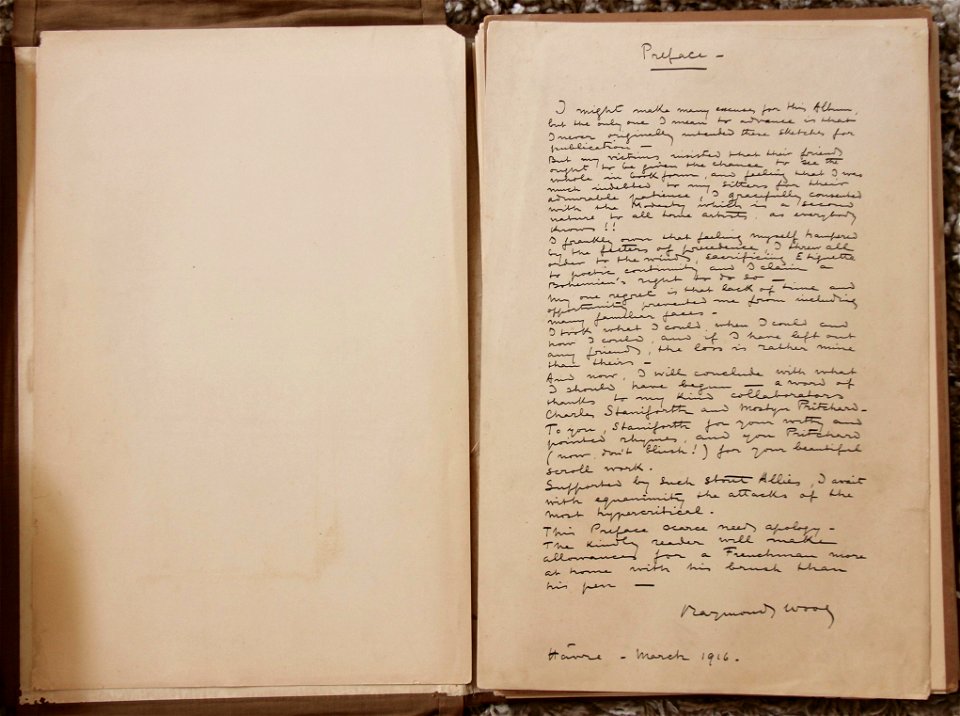 Preface -
I might make many excuses for this Album,
but the only one I mean to advance is that
I never originally intended these sketches for
publication -
But my victims insisted that their friends
ought to be given the chance to see the
whole in book form, and feeling that I was
much indebted to my sitters for their
admirable patience, I gracefully consented
with the Modesty which is a second
nature to all true artists, as everybody
knows!!
I frankly own that feeling myself hampered
by the fetters of precedence, I threw all
order to the winds, sacrificing Etiquette
to poetic continuity and I claim a
Bohemien's right to do so -
My one regret is that lack of time and
opportunity prevented me from including
many familiar faces -
I took what I could, when I could and
how I could, and if I have left out
any friends, the loss is rather mine
than theirs -
And now, I will conclude with what
I should have begun - a word of
thanks to my kind collaborators
Charles Staniforth and Mostyn Pritchard -
To you, Staniforth for your witty and
pointed rhymes, and you Pritchard
(now don't blush!) for your beautiful
scroll work.
Supported by such stout Allies, I await
with equanimity the attacks of the
most hypercritical.
This Preface scarce needs apology -
The kindly reader will make
allowances for a Frenchman more
at home with his brush than
his pen -
Raymond Woog
Hâvre - March 1916.